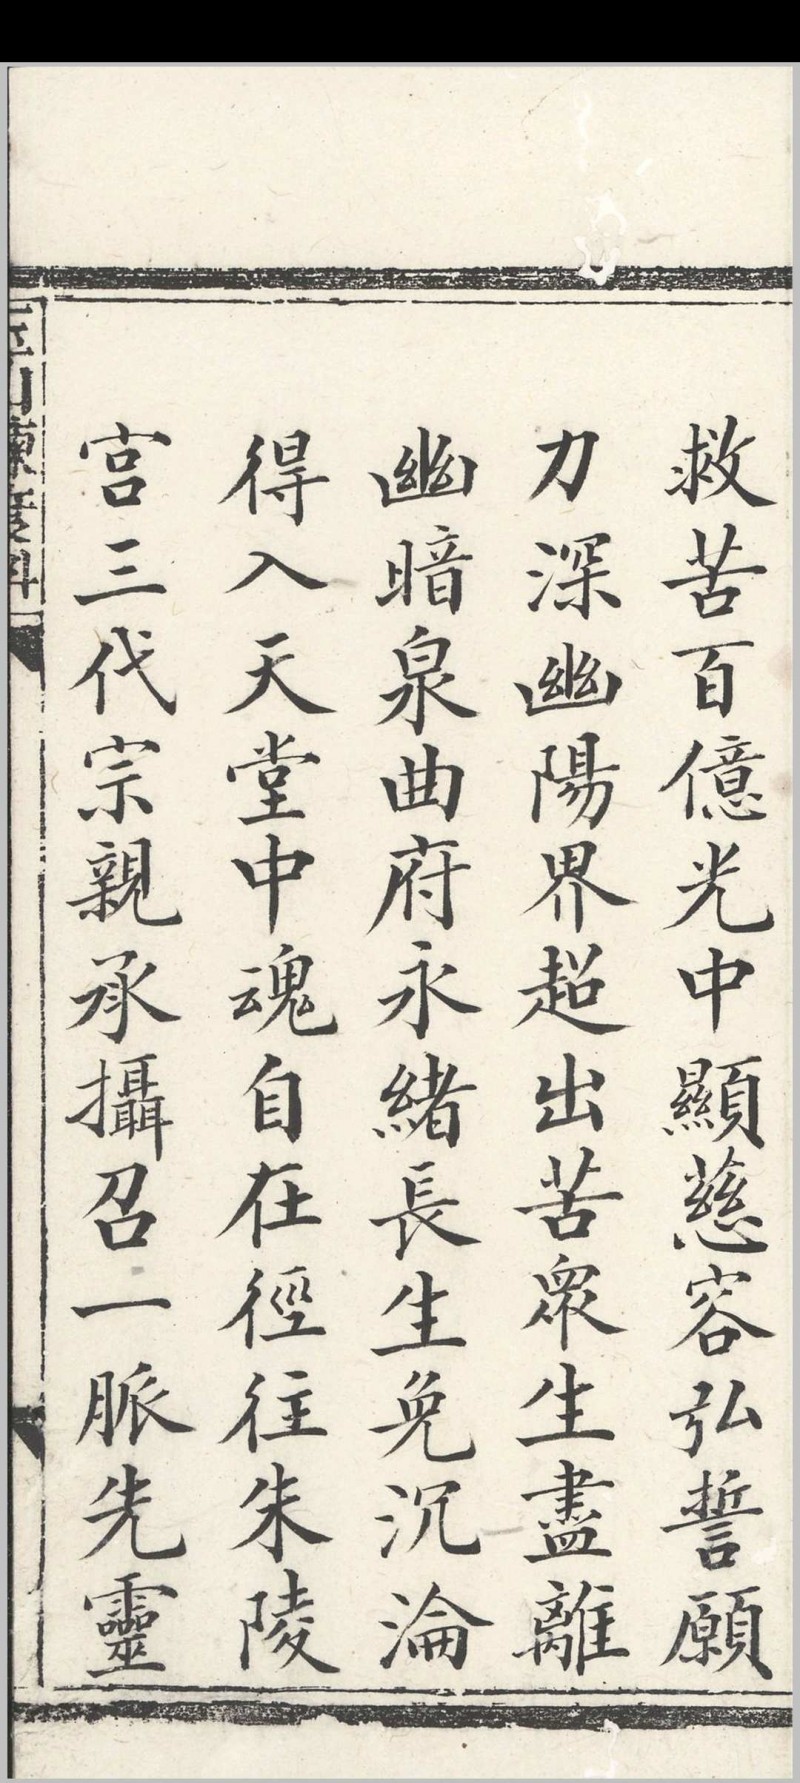 救苦百億光中顯慈容弘誓願
力深幽陽界超出苦衆生盡離
幽暗泉曲府永緒長生免沉淪
得入天堂中魂自在徑往朱陵
宮三代宗親承攝召一脈先靈